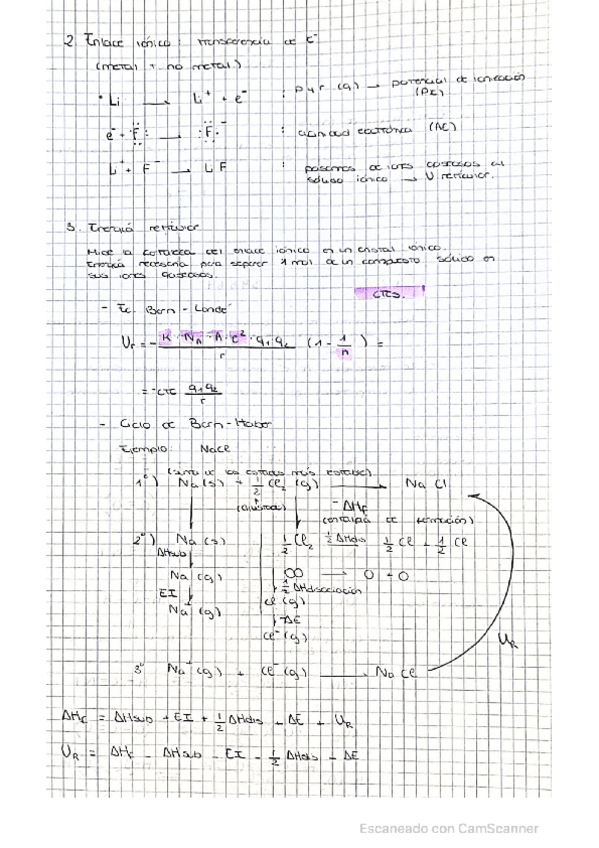 2. Enlace iónico: transferencia de e⁻
(metal + no metal)
· Li → Li⁺ + e⁻ : (g) → potencial de ionización
(PE)
e⁻ + F: → :F:⁻ : afinidad electrónica (AE)
Li⁺ + F⁻ → LiF : pasamos de iones gaseosos al
sólido iónico → U reticular.
3. Energía reticular
Mide la fortaleza del enlace iónico en un cristal iónico.
Energía necesaria para separar 1 mol de un compuesto sólido en
sus iones gaseosos.
CTES.
- Ec. Born - Landé
Ur = - K · NA · A · e² · q₁ q₂ / r (1 - 1/n) =
= -CTE q₁q₂ / r
- Ciclo de Born-Haber
Ejemplo: NaCl
de los estados más estables)
1º) Na(s) + 1/2 Cl₂ (g) → NaCl
- ΔHf
(entalpía de formación)
2º) Na(s) 1/2 Cl₂ 1/2 ΔHdis 1/2 Cl - 1/2 Cl
ΔHsub
Na (g) OO → O - O
EI 1/2 ΔHdisociación
Na⁺(g) Cl (g)
- ΔE
Cl⁻(g)
UR
3º Na⁺(g) + Cl⁻(g) → NaCl
ΔHf = ΔHsub + EI + 1/2 ΔHdis - ΔE + UR
UR = ΔHf - ΔHsub - EI - 1/2 ΔHdis - ΔE
Escaneado con CamScanner